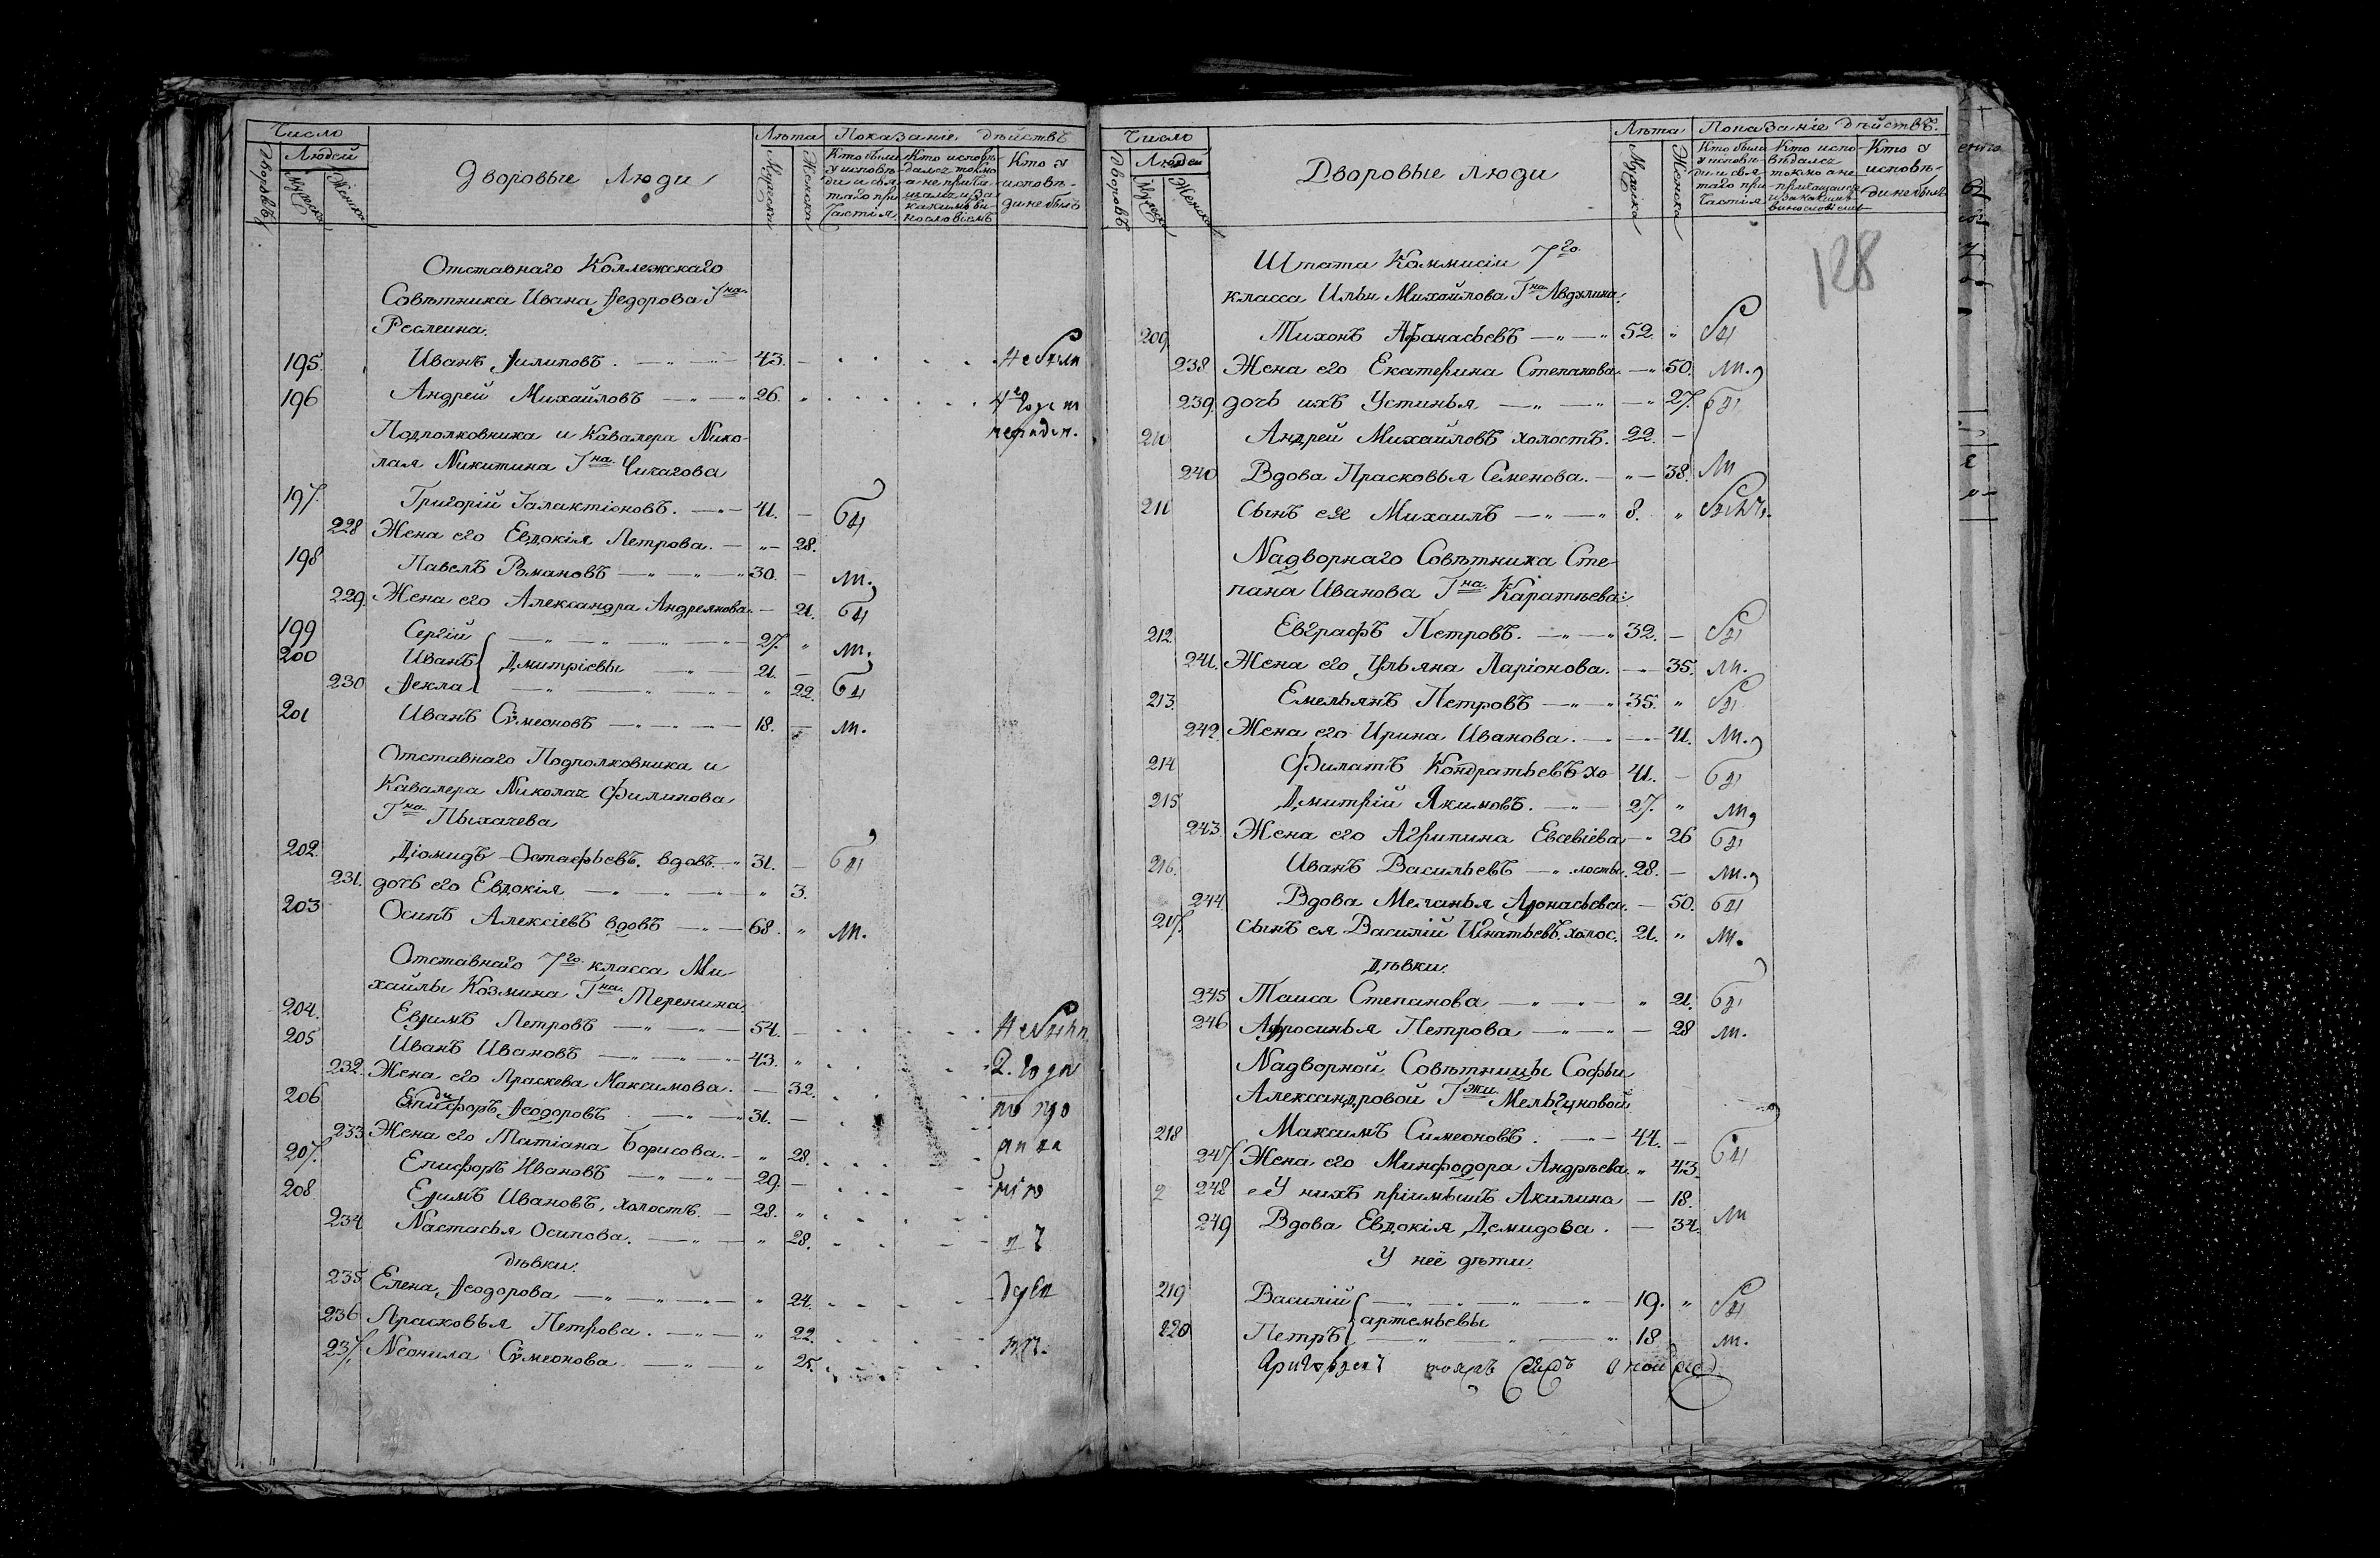 Число
Людей
Дворовъ
Мужеска
Женска
Дворовые люди
Лѣта
Мужеска
Женска
Показаніе дѣйствъ
Кто были у исповѣди и святаго причастія
Кто исповѣдался токмо а не приобщался и за какимъ винословіемъ
Кто у исповѣди небылъ
Отставнаго Коллежскаго
Совѣтника Ивана Ѳедорова Гна
195. Иванъ Ѳилиповъ. 43. Небыли
196 Андрей Михайловъ 26.
Подполковника и Кавалера Нико-
лая Никитина Гна Чичагова
197. Григорій Галактіоновъ. 41. бы
228 Жена его Евдокія Петрова. 28.
198 Павелъ Романовъ 30. ли.
229. Жена его Александра Андреянова. 21. бы
199 Сергій 27. ли.
200 Иванъ Дмитріевы 21.
230 Ѳекла 22. бы
201 Иванъ Сѵмеоновъ 18. ли.
Отставнаго Подполковника и
Кавалера Николая Филипова
Гна Пыхачева
202. Діомидъ Остафьевъ. вдовъ. 31. бы
231. дочь его Евдокія 3.
203 Осипъ Алексіевъ вдовъ 68. ли.
Отставнаго 7го класса Ми-
хайлы Козмина Гна Теренина
204. Евѳимъ Петровъ 54.
205 Иванъ Ивановъ 43. 2. года
232. Жена его Праскева Максимова. 32.
206 Ѳеодоровъ 31.
233 Жена его Татіана Борисова. 28.
207. Епифоръ Ивановъ 29.
208 Еѳимъ Ивановъ, холостъ. 28.
234 Настасья Осипова. 28.
дѣвки.
235 Елена Ѳеодорова 24.
236 Прасковья Петрова. 22.
237. Неонила Сѵмеонова 25.
Число
Людей
Дворовъ
Мужеска
Женска
Дворовые люди
Лѣта
Мужеска
Женска
Показаніе дѣйствъ.
Кто были у исповѣди и святаго причастія
Кто исповѣдался токмо а не приобщался и за какимъ винословіемъ
Кто у исповѣди небылъ
128
Штата Коммисіи 7го
класса Ильи Михайлова Гна Авдулина.
209. Тихонъ Афанасьевъ 52. бы
238 Жена его Екатерина Степанова. 50. ли.
239. дочь ихъ Устинья 27. бы
210 Андрей Михайловъ холостъ. 22.
240 Вдова Прасковья Семенова. 38. ли
211 Сынъ ея Михаилъ 8.
Надворнаго Совѣтника Сте-
пана Иванова Гна Каратѣева:
212. Евграфъ Петровъ. 32. бы
241. Жена его Ульяна Ларіонова. 35. ли.
213. Емельянъ Петровъ 35. бы
242. Жена его Ирина Иванова. 41. ли.
214 Филатъ Кондратьевъ хо 41. бы
215 Дмитрій Якимовъ. 27. ли
243. Жена его Агрипина Евсевіева 26 бы
216. Иванъ Васильевъ лосты. 28. ли.
244. Вдова Меланья Аѳонасьева. 50. бы
217. сынъ ея Василій Игнатьевъ, холос. 21. ли.
дѣвки.
245 Таиса Степанова 21. бы
246 Афросинья Петрова 28 ли.
Надворной Совѣтницы Софьи
Александровой Гжи Мельгуновой
218 Максимъ Симеоновъ. 44. бы
247 Жена его Минфодора Андрѣева. 43.
248 У нихъ пріимышъ Акилина 18.
249 Вдова Евдокія Демидова. 34. ли
У неё дѣти.
219 Василій 19. бы
артемьевы
220 Петръ 18 ли.